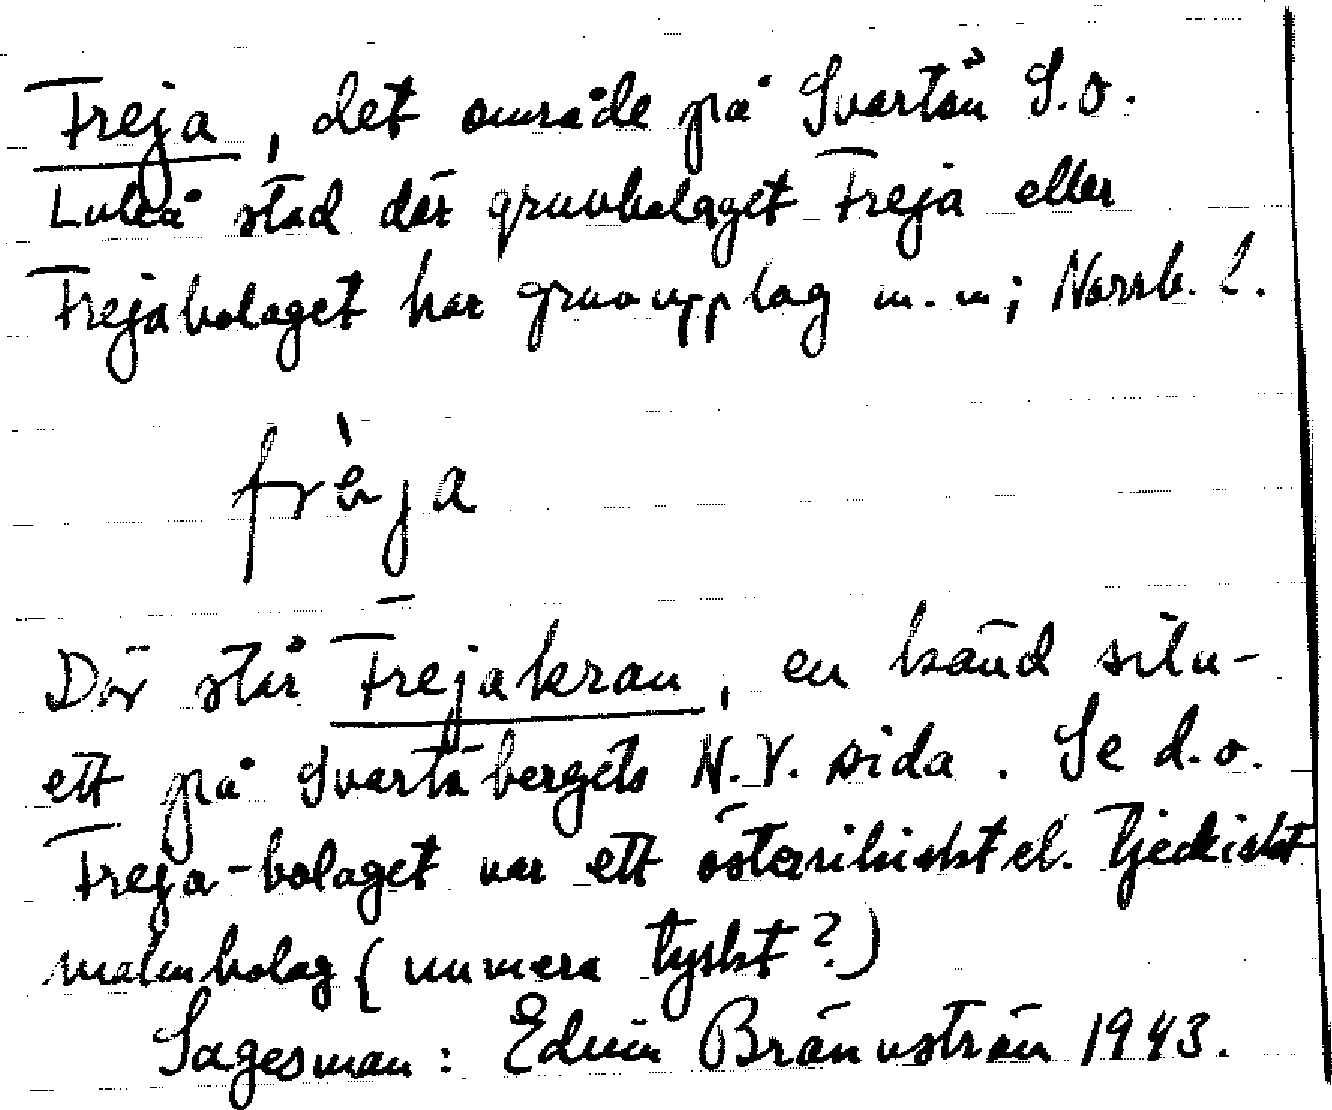 Freja, det område på Svartön S.O.
Luleå stad där gruvbolaget Freja eller
Frejabolaget har gruvupplag m.m; Norrb. l.
frèja
Där står Frejakran, en känd silu-
ett på Svartöbergets N.V. sida. Se d.o.
Freja-bolaget var ett österrikiskt el. Tjeckiskt
malmbolag (numera tyskt?)
Sagesman: Edvin Brännström 1943.